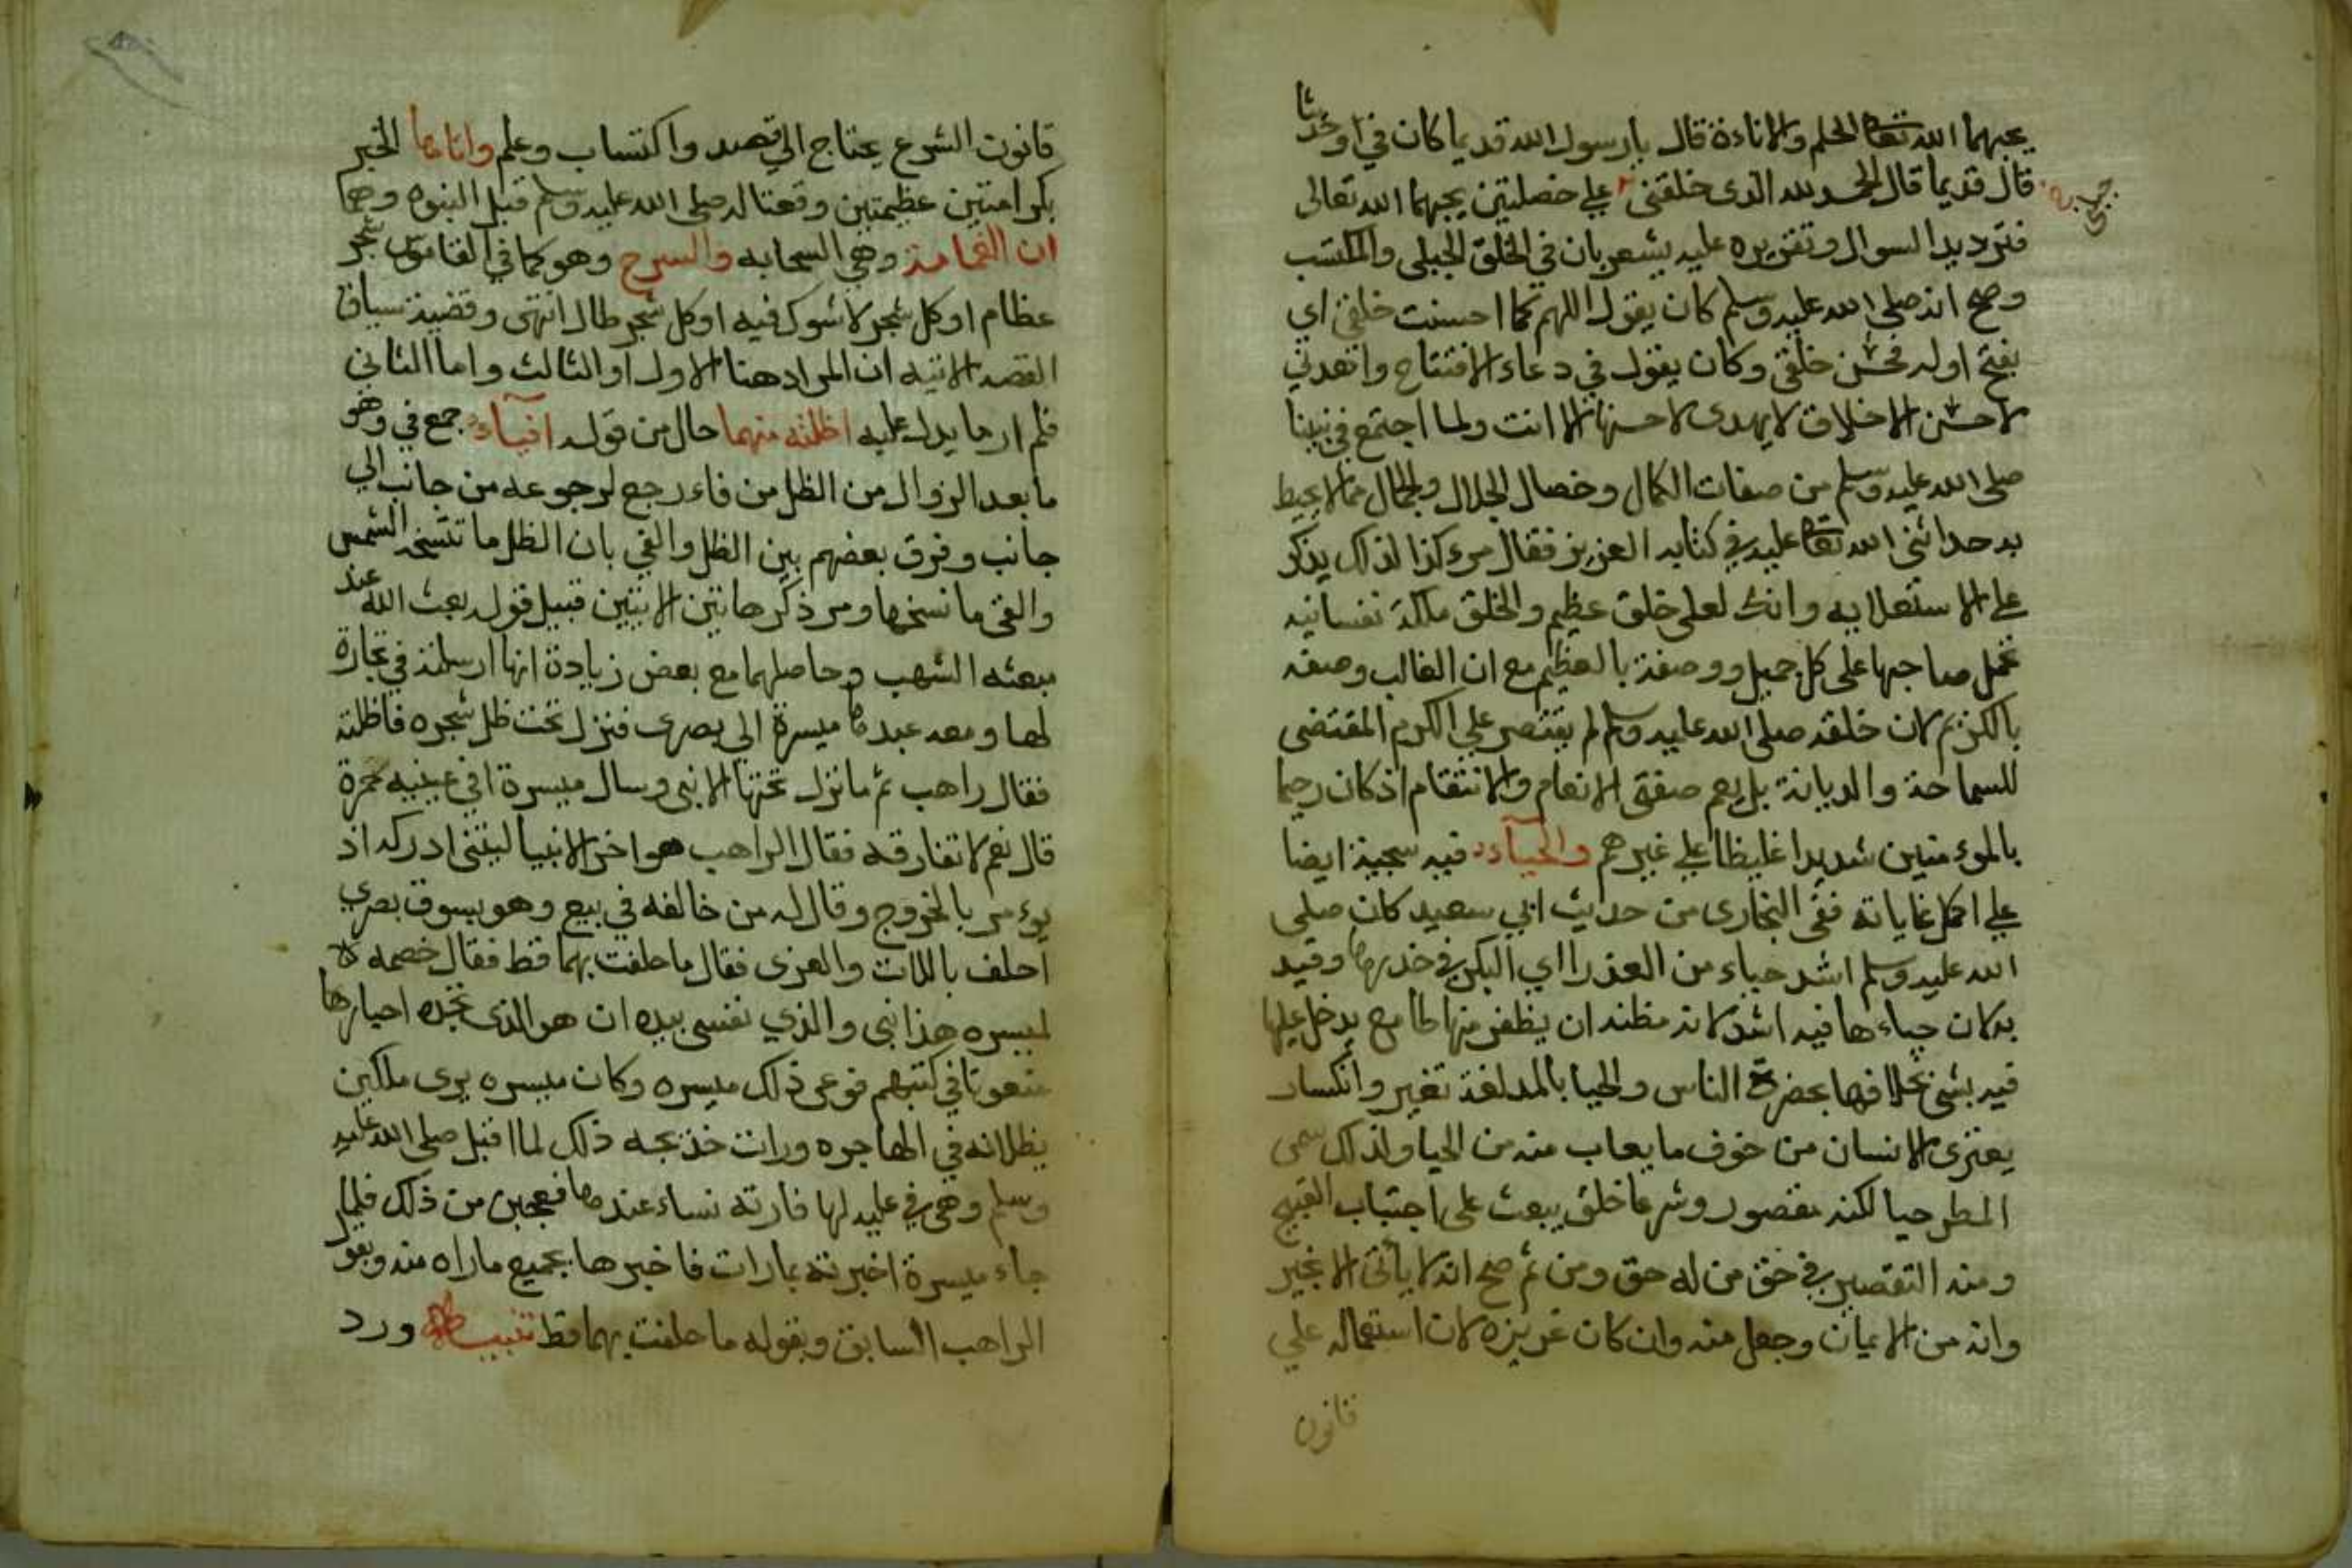 يحبهما الله تعالى الحلم والاناءة قال يارسول الله قديما كان في او حديثا
قال قديما قال الحمد لله الذى خلقنى على خصلتين يحبهما الله تعالى
فترديد السوال وتقريره عليه يشعر بان في الخلق الجبلى والمكتسب
وصح انه صلى الله عليه وسلم كان يقول اللهم كما احسنت خلقي اي
بفتح اوله فحسن خلقي وكان يقول في دعاء الافتتاح واهدني
لاحسن الاخلاق لا يهدى لاحسنها الا انت ولما اجتمع في نبينا
صلى الله عليه وسلم من صفات الكمال وخصال الجلال والجمال ما لا يحيط
به حد اثنى الله تعالى عليه في كتابه العزيز فقال مركزا لذلك يذكر
على الاستعلايه وانك لعلى خلق عظيم والخلق ملكة نفسانيه
تحمل صاحبها على كل جميل ووصفة بالعظيم مع ان الغالب وصفه
بالكرم لان خلقه صلى الله عليه وسلم لم يقتصر على الكرم المقتضى
للسماحة والديانة بل يعم صفتى الانعام والانتقام اذ كان رحيما
بالموء منين شديدا غليظا على غيرهم والحياء فيه سجية ايضا
على اكمل غاياته ففى البخارى من حديث ابي سعيد كان صلى
الله عليه وسلم اشد حياء من العذرا اي البكر في خدرها وقيد
به لان حياءها فيه اشد لانه مظنه ان يظفر منها طامع يدخل عليها
فيه بشى بخلافها بحضرة الناس والحيا بالمد لغة تغير وانكسار
يعترى الانسان من خوف ما يعاب منه من الحيا ولذلك سمى
المطر حيا لكنه مقصور وشرعا خلق يبعث على اجتباب القبيح
ومنه التقصير في حق من له حق ومن ثم صح انه لا يأتى الا بخير
وانه من الايمان وجعل منه وان كان غريزه لان استعماله على
قانون
قانون الشرع يحتاج الى قصد واكتساب وعلم واتاها الخبر
بكرامتين عظيمتين وقعتا له صلى الله عليه وسلم قبل النبوه وهما
ان الغمامة وهي السحابه والسرح وهو كما في القاموس شجر
عظام او كل شجر لا شوك فيه او كل شجر طال انتهى وقضية سياق
القصه الاتيه ان المراد هنا الاول او الثالث واما الثانى
فلم ار ما يدل عليه اظلته منهما حال من قوله افياء جمع في وهو
ما بعد الزوال من الظل من فاء رجع لرجوعه من جانب الي
جانب وفرق بعضهم بين الظل والفي بان الظل ما تنسخه الشمس
والفى ما نسخها ومر ذكر هاتين الايتين قبيل قوله بعث الله عند
مبعثه الشهب وحاصلهما مع بعض زيادة انها ارسلته في تجارة
لها ومعه عبدها ميسرة الى بصرى فنزل تحت ظل شجره فاظلته
فقال راهب ثم ما نزل تحتها الا نبى وسال ميسرة افي عينيه حمرة
قال نعم لا تفارقه فقال الراهب هو اخر الانبيا ليتنى ادركه اذ
يوءمر بالخروج وقال له من خالفه في بيع وهو بسوق بصرى
احلف باللات والعزى فقال ما حلفت بهما قط فقال خصمه
لميسره هذا نبى والذي نفسى بيده ان هو الذى تجده احبارها
منعوتا في كتبهم فوعى ذلك ميسره وكان ميسره يرى ملكين
يظلانه في الهاجره ورات خديجه ذلك لما اقبل صلى الله عليه
وسلم وهى في عليه لها فارته نساء عندها فعجبن من ذلك فلما
جاء ميسرة اخبرته بما رات فاخبرها بجميع ماراه منه وبقول
الراهب السابق وبقوله ما حلفت بهما قط تنبيه ورد